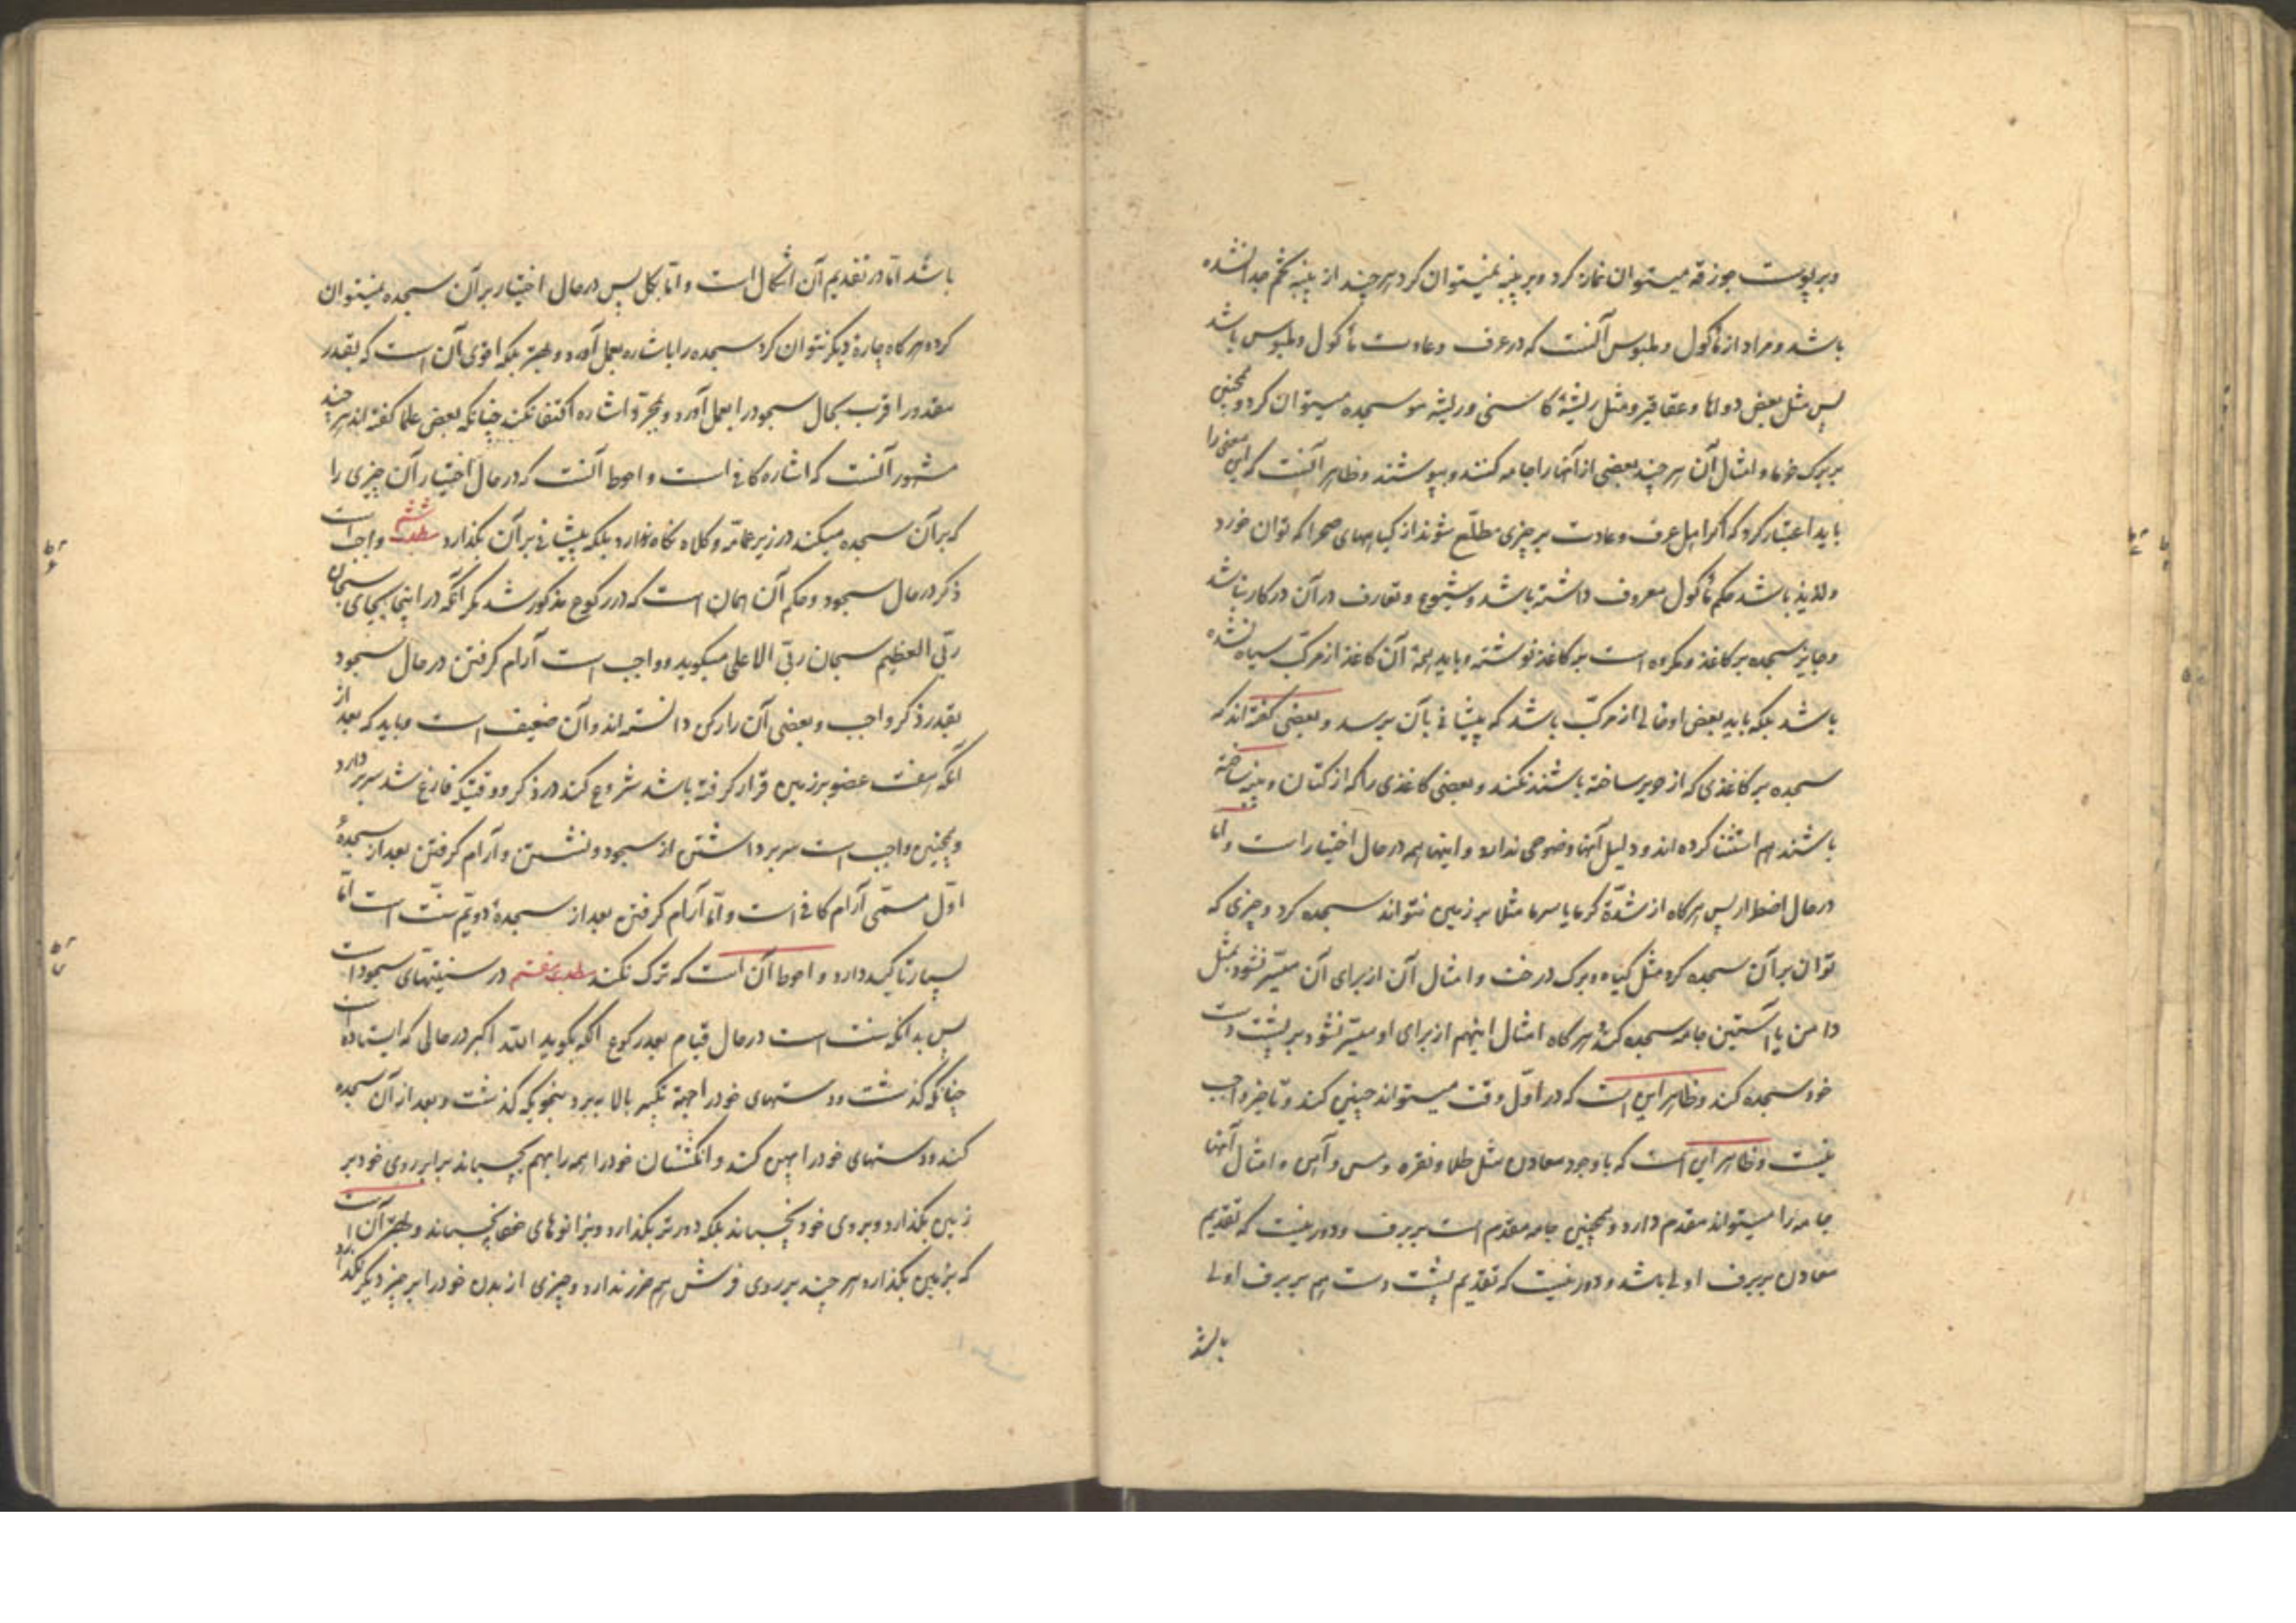 و بر پوست جوزقه میتوان نماز کرد و بر پنبه نمیتوان کرد هر چند از پنبه تخم جدا نشده
باشد و مراد از مأکول و ملبوس آنست که در عرف و عادت مأکول و ملبوس باشد
پس مثل بعض دواها و عقاقیر و مثل ریشهٔ کاسنی و ریشه مو سجده میتوان کرد و همچنین
بر برک خرما و امثال آن هر چند بعضی از آنها را جامه کنند و بپوشند و ظاهر آنست که این معنی را
باید اعتبار کرد که اکر اهل عرف و عادت بر چیزی مطلّع شوند از کیاههای صحرا که توان خورد
و لذیذ باشد حکم مأکول معروف داشته باشد و شیوع و تعارف در آن در کار نباشد
و جایز سجده بر کاغذ و مکروه است بر کاغذ نوشته و باید همهٔ آن کاغذ از مرکّب سیاه نشده
باشد بلکه باید بعض او خالی از مرکّب باشد که پیشانی بآن برسد و بعضی کفته‌اند که
سجده بر کاغذی که از حریر ساخته باشند نکند و بعضی کاغذی را که از کتان و پنبه ساخته
باشند هم استثنا کرده‌اند و دلیل آنها وضوحی ندارد و اینها همه در حال اختیار است و اما
در حال اضطرار پس هر کاه از شدّة کرما یا سرما مثلا بر زمین نتواند سجده کرد و چیزی که
توان بر آن سجده کرد مثل کیاه و برک درخت و امثال آن از برای آن میسّر نشود بمثل
دامن یا آستین جامه سجده کند و هر کاه امثال اینهم از برای او میسّر نشود بر پشت دست
خود سجده کند و ظاهر این است که در اوّل وقت میتواند چنین کند و تاخیر واجب
نیست و ظاهر این است که با وجود معادن مثل طلا و نقره و مس و آهن و امثال آنها
جامه را میتواند مقدم دارد و همچنین جامه مقدم است بر برف و دور نیست که تقدیم
معادن بر برف اولی باشد و دور نیست که تقدیم پشت دست هم بر برف اولی
باشد
باشد امّا در تقدیم آن اشکال است و امّا بکل پس در حال اختیار بر آن سجده نمیتوان
کرد و هر کاه چارهٔ دیکر نتوان کرد سجده را باشاره بعمل آورد و بهتر بلکه اقوی آن است که بقدر
مقدور اقرب بحال سجود را بعمل آورد و بمجرّد اشاره اکتفا نکند چنانکه بعض علما کفته‌اند هر چند
مشهور آنست که اشاره کافی است و احوط آنست که در حال اختیار آن چیزی را
که بر آن سجده میکند در زیر عمامّه و کلاه نکاه ندارد بلکه پیشانی بر آن بکذارد مطلب ششم واجب است
ذکر در حال سجود و حکم آن همان است که در رکوع مذکور شد مکر آنکه در اینجا بجای سبحان
ربّی العظیم سبحان ربّی الاعلی میکوید و واجب است آرام کرفتن در حال سجود
بقدر ذکر واجب و بعضی آن را رکن دانسته‌اند و آن ضعیف است و باید که بعد از
آنکه هفت عضو بر زمین قرار کرفته باشد شروع کند در ذکر و وقتیکه فارغ شد سر بردارد
و همچنین واجب است سر برداشتن از سجود و نشستن و آرام کرفتن بعد از سجدهٔ
اوّل مسمّی آرام کافی است و امّا آرام کرفتن بعد از سجدهٔ دویّم سنّت است امّا
بسیار تاکید دارد و احوط آن است که ترک نکند مطلب هفتم در سنتیهای سجود است
پس بدانکه سنت است در حال قیام بعد رکوع آنکه بکوید الله اکبر در حالی که ایستاده است
چنانکه کذشت و دستهای خود را بجهة تکبیر بالا ببرد بنحویکه کذشت و بعد از آن سجده
کند و دستهای خود را پهن کند و انکشتان خود را همه را بهم بچسباند برابر روی خود بر
زمین بکذارد و بروی خود نچسباند بلکه دورتر بکذارد و بزانوهای خود نچسباند و بهتر آن است
که بزمین بکذارد هر چند بر روی فرش هم ضرر ندارد و چیزی از بدن خود را بر چیز دیکر نکذارد